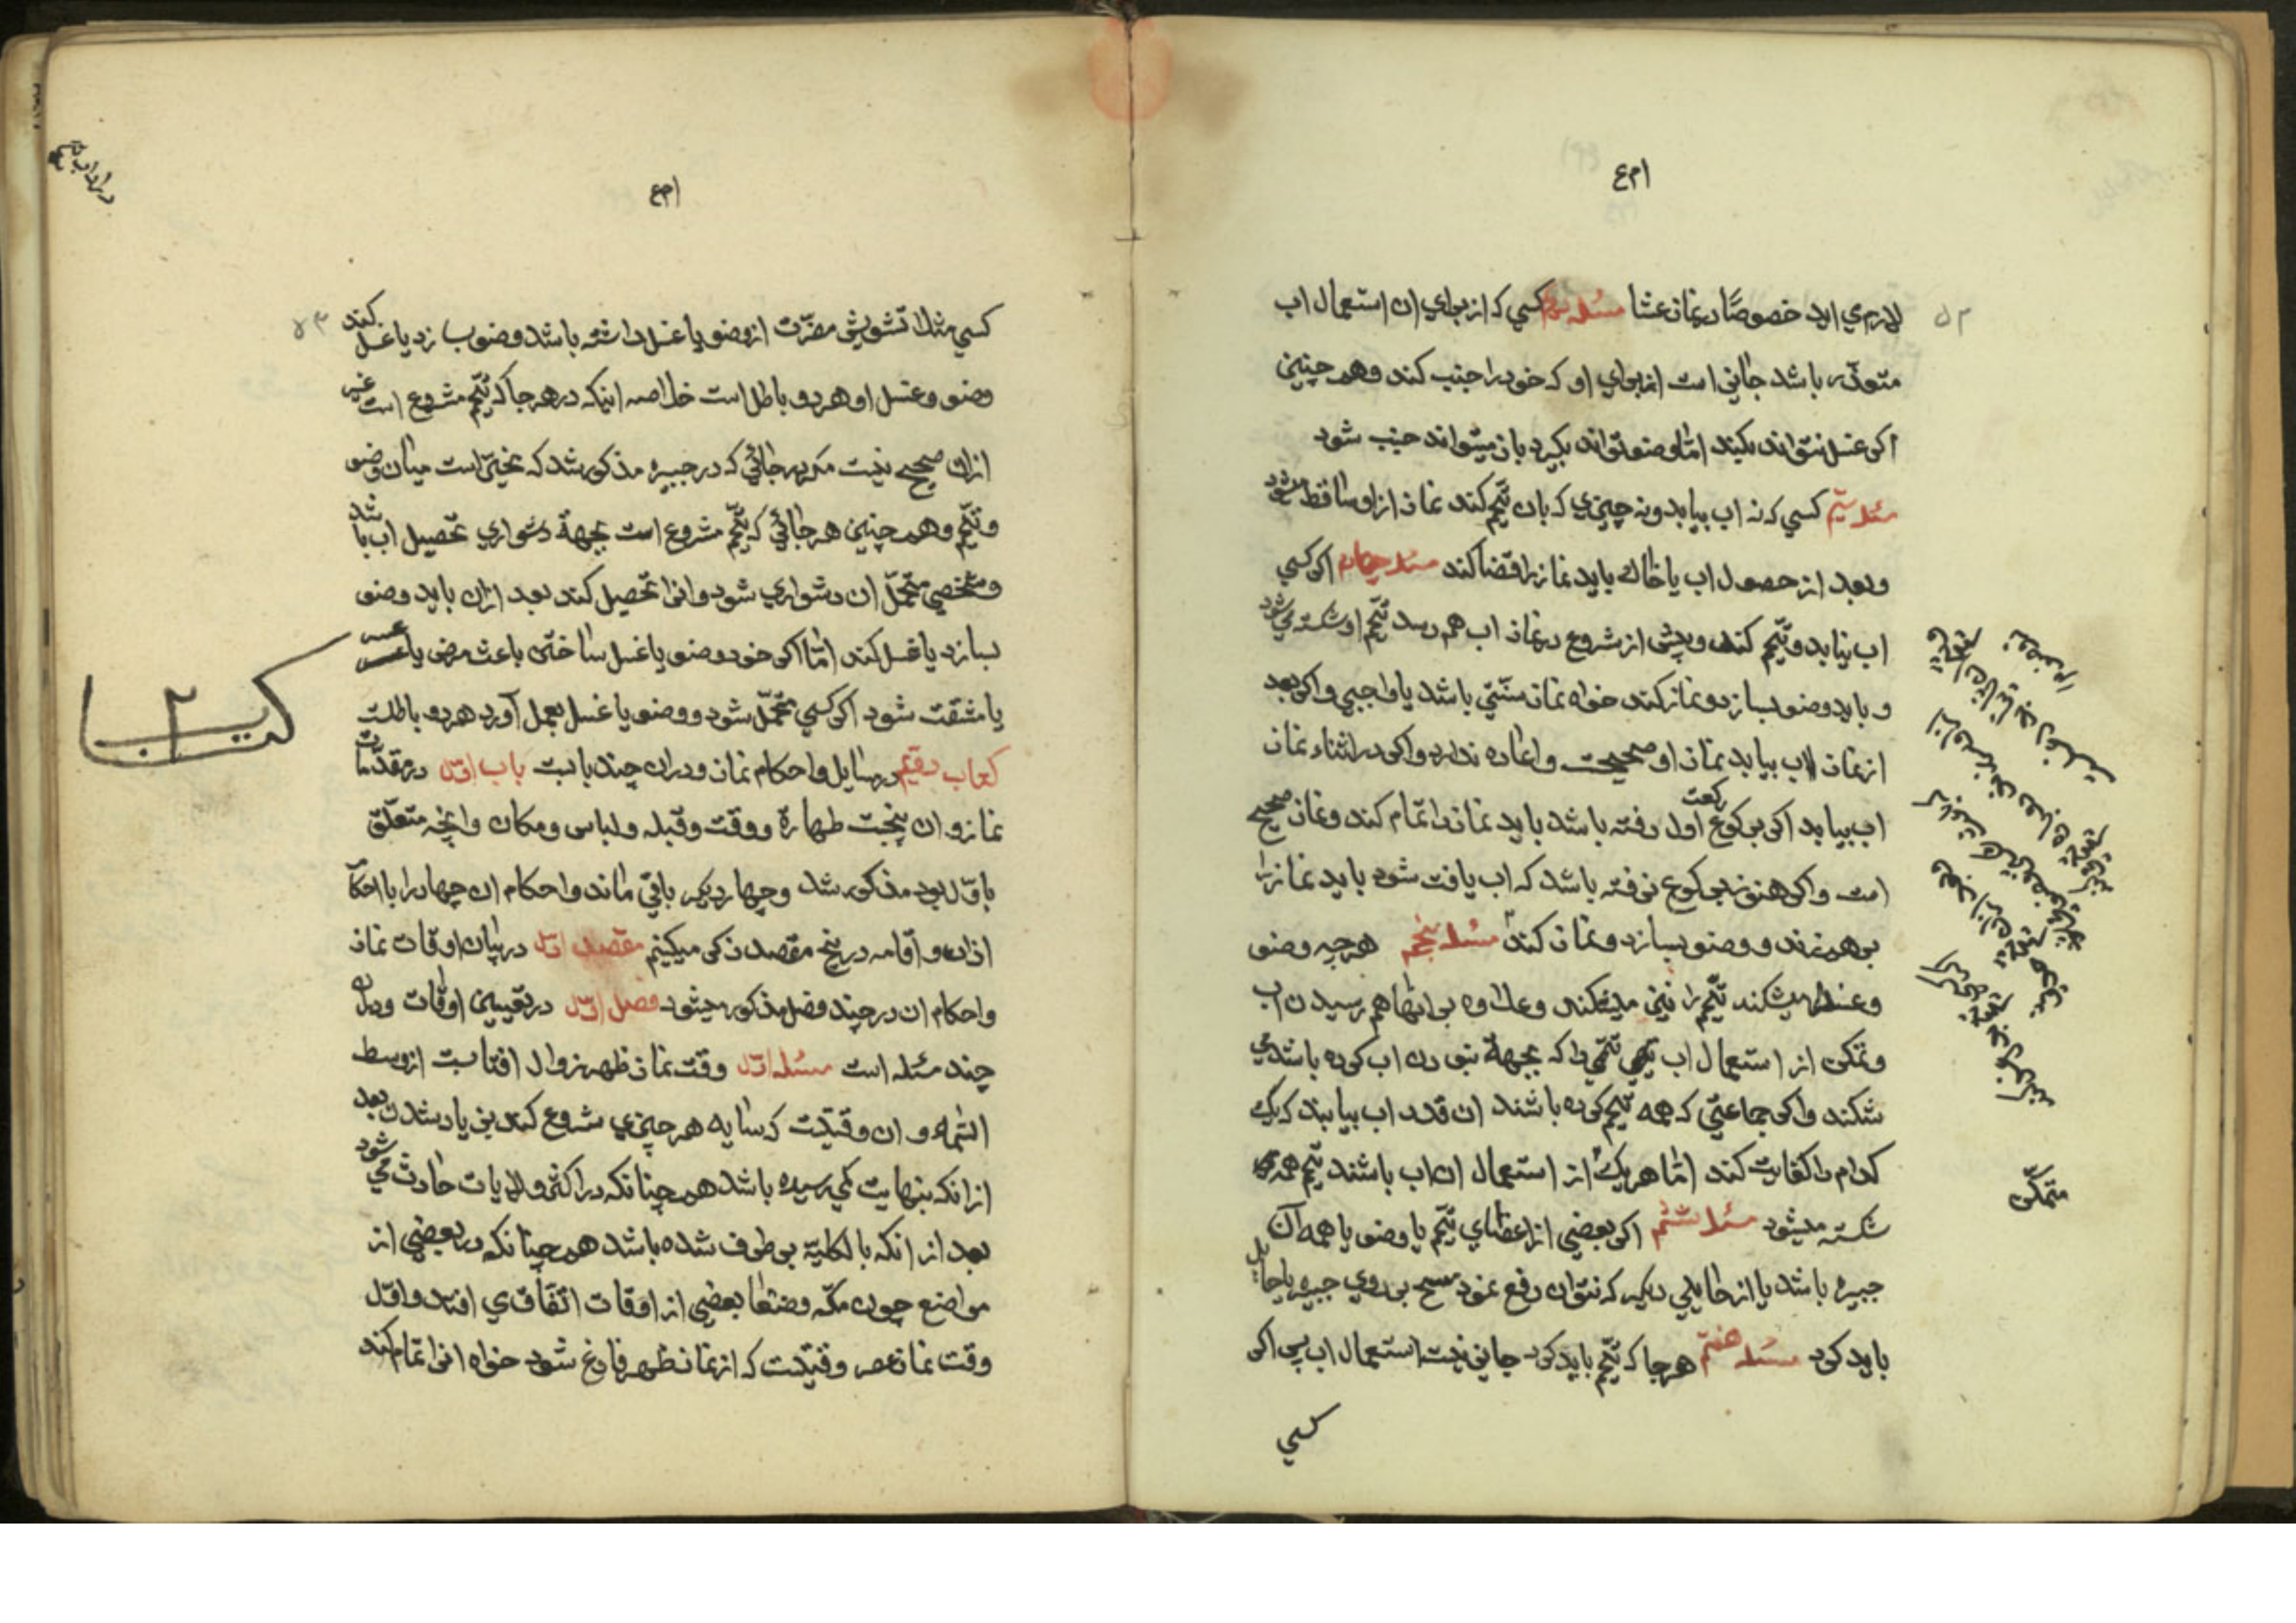 ام ع
۵۲
لازم می اید خصوصًا در نماز عشا مسئله دوم کسی که از برای ان استعمال اب
متعذّر باشد جایز است از برای او که خود را جنب کند و همچنین
اکر غسل نتواند بکند امّا وضو تواند بکیرد باز میتواند جنب شود
مسئله سیّم کسی که نه اب بیابد و نه چیزی که بان تیمّم کند نماز از او ساقط میشود
و بعد از حصول اب یا خاک باید نماز را قضا کند مسئله چهارم اکر کسی
اب نیابد و تیمّم کند و پیش از شروع در نماز اب هم رسد تیمّم او شکسته می شود
و باید وضو بسازد و نماز کند خواه نماز سنّتی باشد یا واجبی و اکر بعد
از نماز اب بیابد نماز او صحیحست و اعاده ندارد و اکر در اثناء نماز
اب بیابد اکر برکوع رکعت اول رفته باشد باید نماز را تمام کند و نماز صحیح
است و اکر هنوز برکوع نرفته باشد که اب یافت شود باید نماز را
بر هم زند و وضو بسازد و نماز کند مسئله پنجم هر چه وضو
و غسل را میشکند تیمّم را نیز میشکند و علاوه بر انها هم رسیدن اب
و تمکن از استعمال اب تیممی را که بجهة نبودن اب کرده باشد می
شکند و اکر جماعتی که همه تیمّم کرده باشند ان قدر اب بیابند که یک
کدام را کفایت کند امّا هر یک از استعمال ان اب باشند تیمّم همه
شکسته میشود مسئله ششم اکر بعضی از اعضای تیمّم یا وضو یا همه آن
جبیره باشد یا از حایلی دیکر که نتوان رفع نمود مسح بر روی جبیره یا حایل
باید کرد مسئله هفتم هر جا که تیمّم باید کرد جایز نیست استعمال اب پس اکر
کسی
متمکّن
ام ع
۵۳
کسی مثلا تشویش مضرّت از وضو یا غسل داشته باشد و وضو بسازد یا غسل کند
وضو و غسل او هر دو باطل است خلاصه اینکه در هر جا که تیمّم مشروع است غیر
از ان صحیح نیست مکر در جائی که در جبیره مذکور شد که مخیّر است میان وضو
و تیمّم و همچنین هر جائی که تیمّم مشروع است بجهة دشواری تحصیل اب باشد
و شخصی متحمّل ان دشواری شود و انرا تحصیل کند بعد از ان باید وضو
بسازد یا غسل کند امّا اکر خود وضو یا غسل ساختن باعث مرض یا عسر
یا مشقت شود اکر کسی متحمّل شود و وضو یا غسل بعمل آورد هر دو باطلست
کتاب دویّم در مسایل و احکام نماز و در ان چند بابست باب اوّل در مقدّمات
نماز و ان پنجست طهارة و وقت و قبله و لباس و مکان و انچه متعلّق
باوّل بود مذکور شد و چهار دیکر باقی ماند و احکام ان چهار را با احکام
اذان و اقامه در پنج مقصد ذکر میکنیم مقصد اوّل در بیان اوقات نماز
و احکام ان در چند فصل مذکور میشود فصل اوّل در تعیین اوقات و در ان
چند مسئله است مسئله اوّل وقت نماز ظهر زوال افتابست از وسط
السّماء و ان وقتیست که سایه هر چیزی شروع کند بزیاد شدن بعد
از انکه بنهایت کمی رسیده باشد همچنانکه در اکثر ولایات حادث می شود
بعد از انکه بالکلیّة بر طرف شده باشد همچنانکه در بعضی از
مواضع چون مکّه و صنعا بعضی از اوقات اتّفاق ی افتد و اوّل
وقت نماز عصر وقتیست که از نماز ظهر فارغ شود خواه انرا تمام کند
کتاب ۲